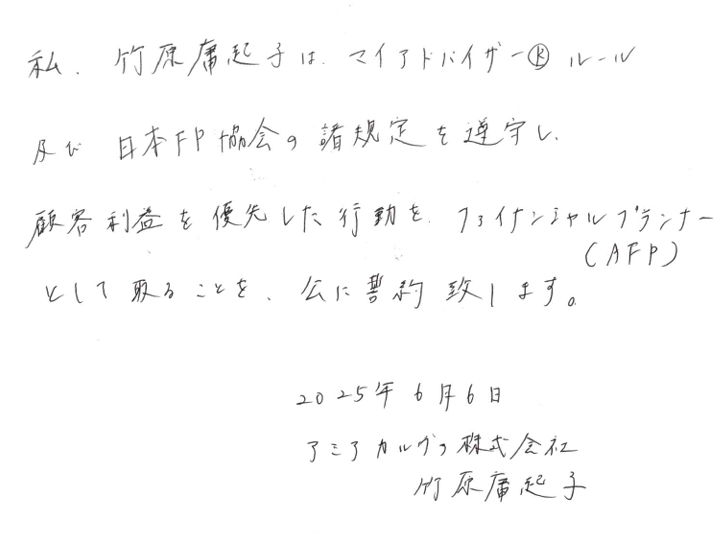 私、竹原庸起子は、マイアドバイザー®ルール
及び日本FP協会の諸規定を遵守し、
顧客利益を優先した行動を、ファイナンシャルプランナー
(AFP)
として取ることを、公に誓約致します。
2025年6月6日
アミアカルヴァ株式会社
竹原庸起子